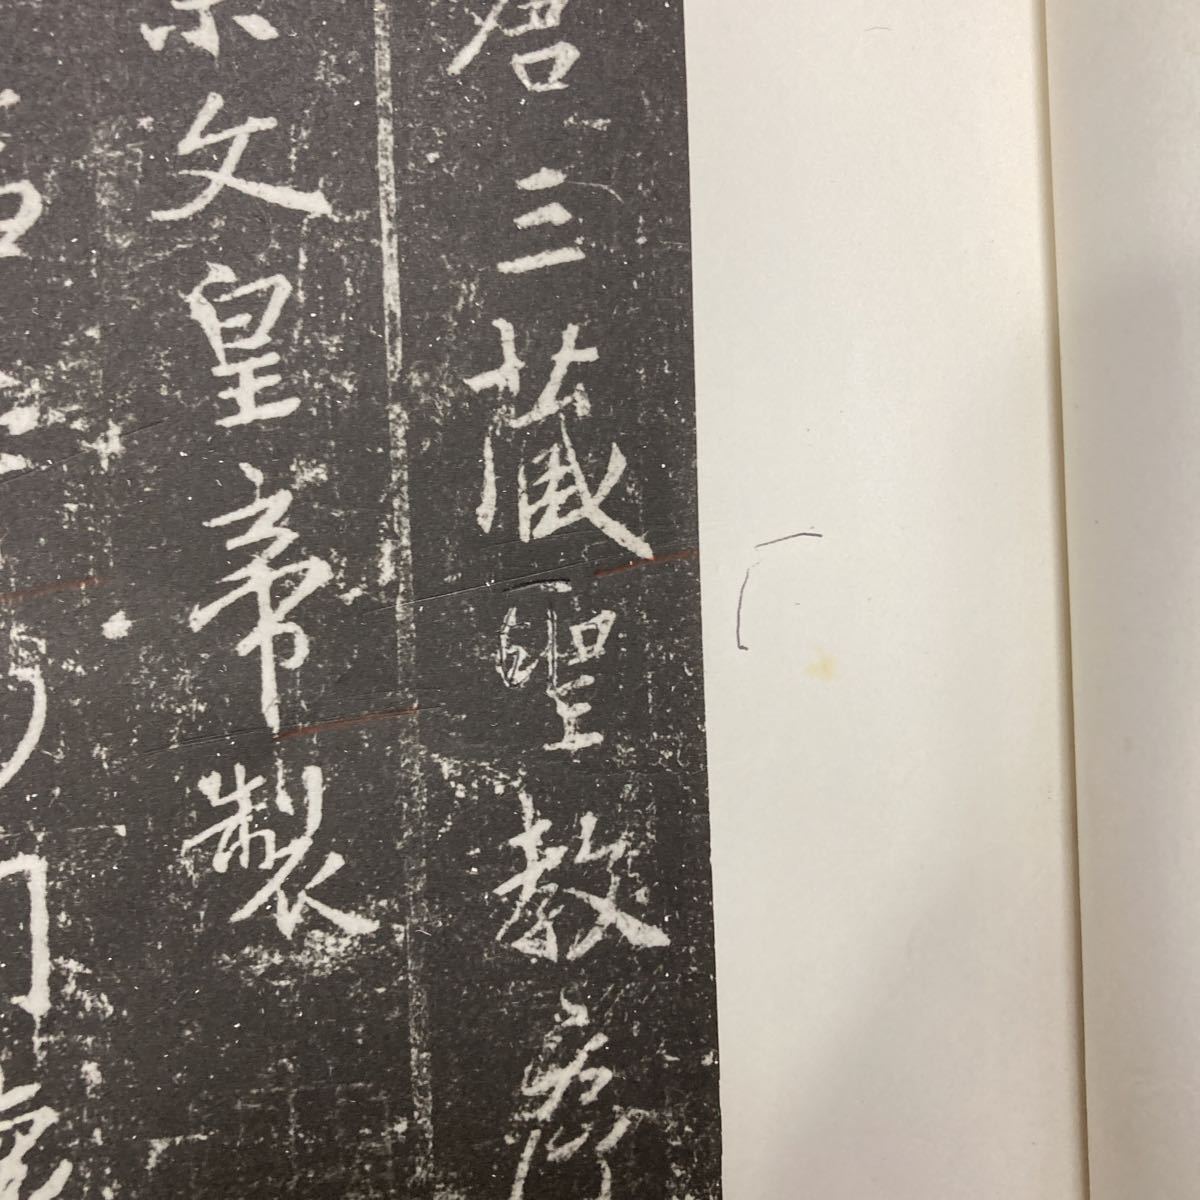 唐三藏聖教序
宗文皇帝製